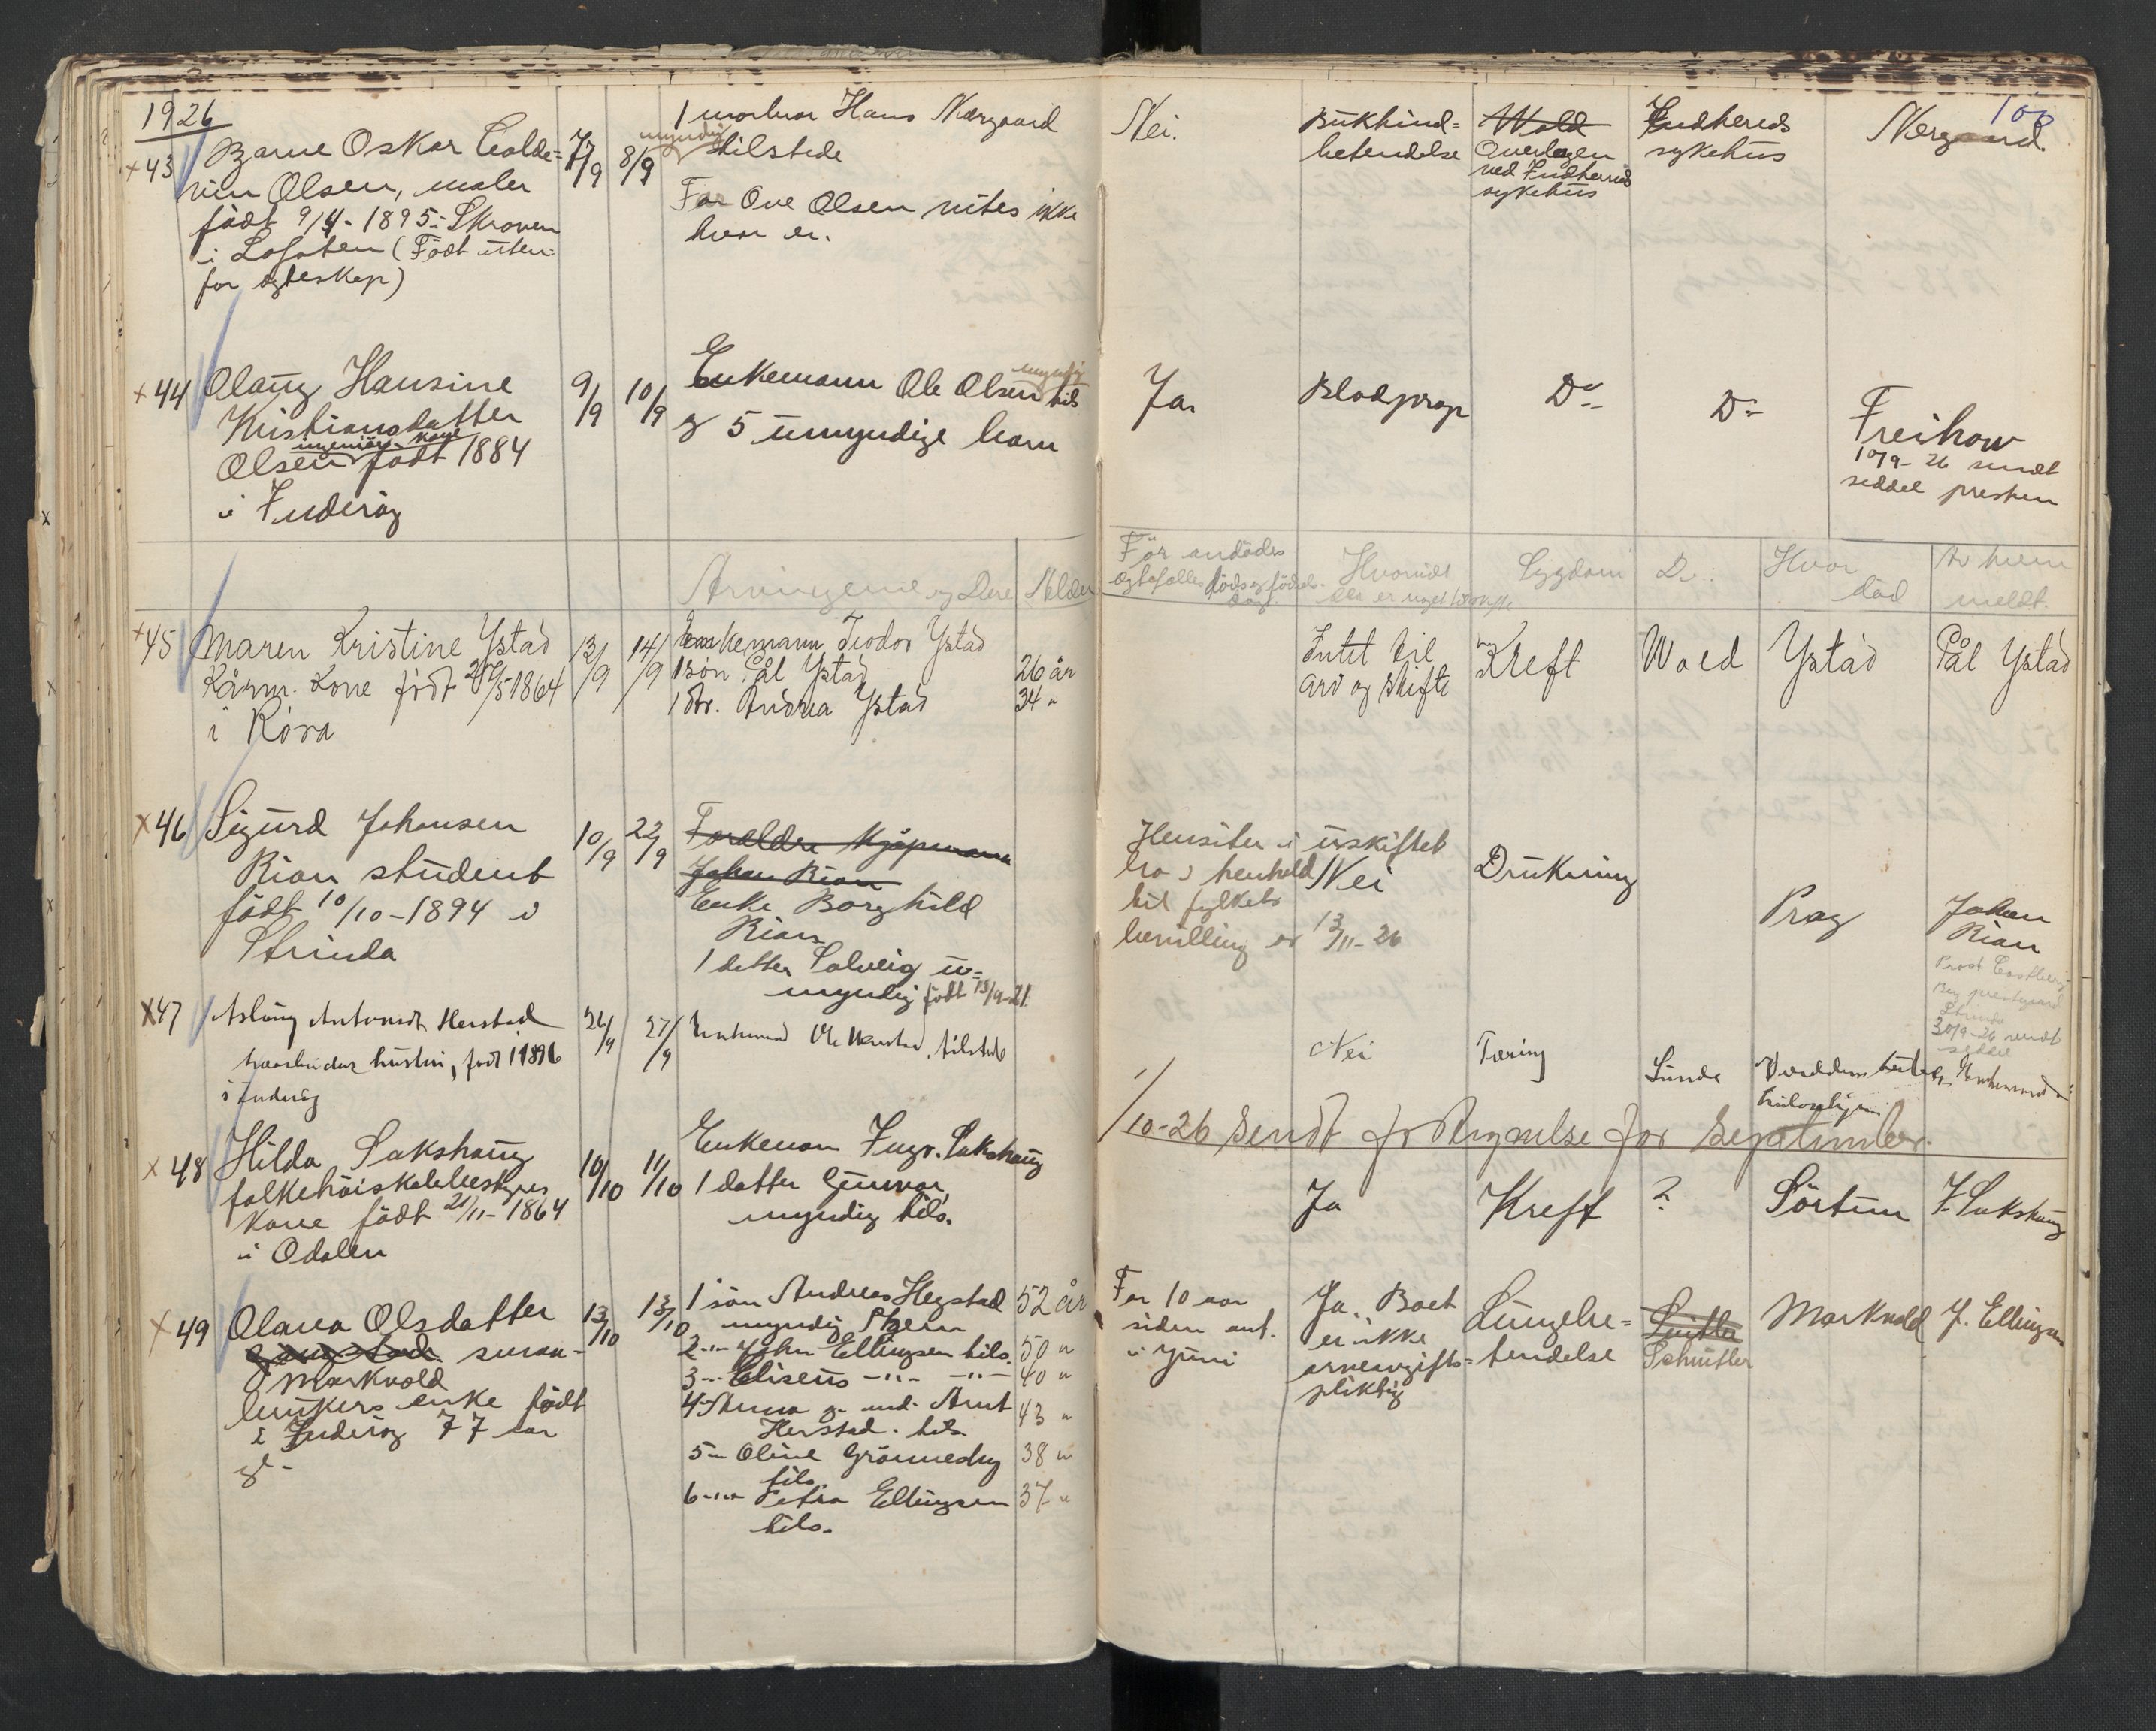 1926
100
+43 Bjarne Oskar Colde=
vin Olsen, maler
født 9/4-1895 i Skroven
i Lofoten (Født uten-
for egteskap)
7/9 8/9
1 morbror Hans Nærgaard
myndig
tilstede
Far Ove Olsen vites ikke
hvor er.
Nei.
Bukhind=
betendelse
Wold
Overlægen
ved Indherred
sykehus
Indhereds
sykehus
Nærgaard.
+44 Olaug Hansine
Kristiansdatter
ingeniørs kone
Olsen født 1884
i Inderøy
9/9 10/9
myndig
Enkemann Ole Olsen tils
og 5 umyndige barn
Ja
Blodprop
Do
Do
Freihow
10/9-26 sendt
seddel presten
Arvingerne og Dere Alder
Før andødes
Hvorvidt
der er noget
Sygdom
Dr.
Hvor
død
Av hvem
meldt.
+45 Maren Kristine Ystad
Kårm. Kone født 1864
i Røra
13/9 14/9
Enkemann Teodor Ystad
1 søn Pål Ystad 26 år
1 dtr. Andrea Ystad 34 "
Intet til
arv og skifte
Kreft
Wold
Ystad
Pål Ystad
x46 Sigurd Johansen
Rian student
født 10/10-1894 i
Strinda
10/9 22/9
Foreldre Kjøpmann
Johan Rian
Enke Borghild
Rian
1 datter Solveig u=
myndig født 13/9-21
Hensitter i uskiftet
bo i henhold
til fylkets
bevilling av 13/11-26
Nei
Drukning
Prag
Johan
Rian
Prost
prestgaard
Strinda
30/9-26 sendt
seddel
x47 Aslaug Antonsdt Herstad
hustru, født 1896
i Inderøy
26/9 27/9
Enkemand Ole Herstad, tilstede
Nei
Tæring
Sunde
Enkemand
1/10-26 Sendt fortegnelse for September.
x48 Hilda Sakshaug
folkehøiskolebestyrers
kone født 21/11-1864
i Odalen
10/10 11/10
Enkeman Ingv. Sakshaug
1 datter Gunvor,
myndig tils.
Ja
Kreft
?
Sørtun
I. Sakshaug
x49 Olava Olsdatter
Markvold
brukers enke født
i Inderøy 77 aar
gl-
13/10 13/10
1 søn Andreas Hegstad 52 år
myndig Stjern
2-"- John Ellingsen tils. 50 "
3-"- Eliseus -"- -"- 40 "
4- Anna g. m. Arnt 43 "
Herstad. tils.
5-" Oline Grønnesby 38 "
tils.
6-"- Petra Ellingsen 37 "
tils.
For 10 aar
siden ant.
i Juni
Ja. Boet
er ikke
arveavgifts=
pliktig
Lungebe=
tendelse
Schutler
Markvold
J. Ellingsen